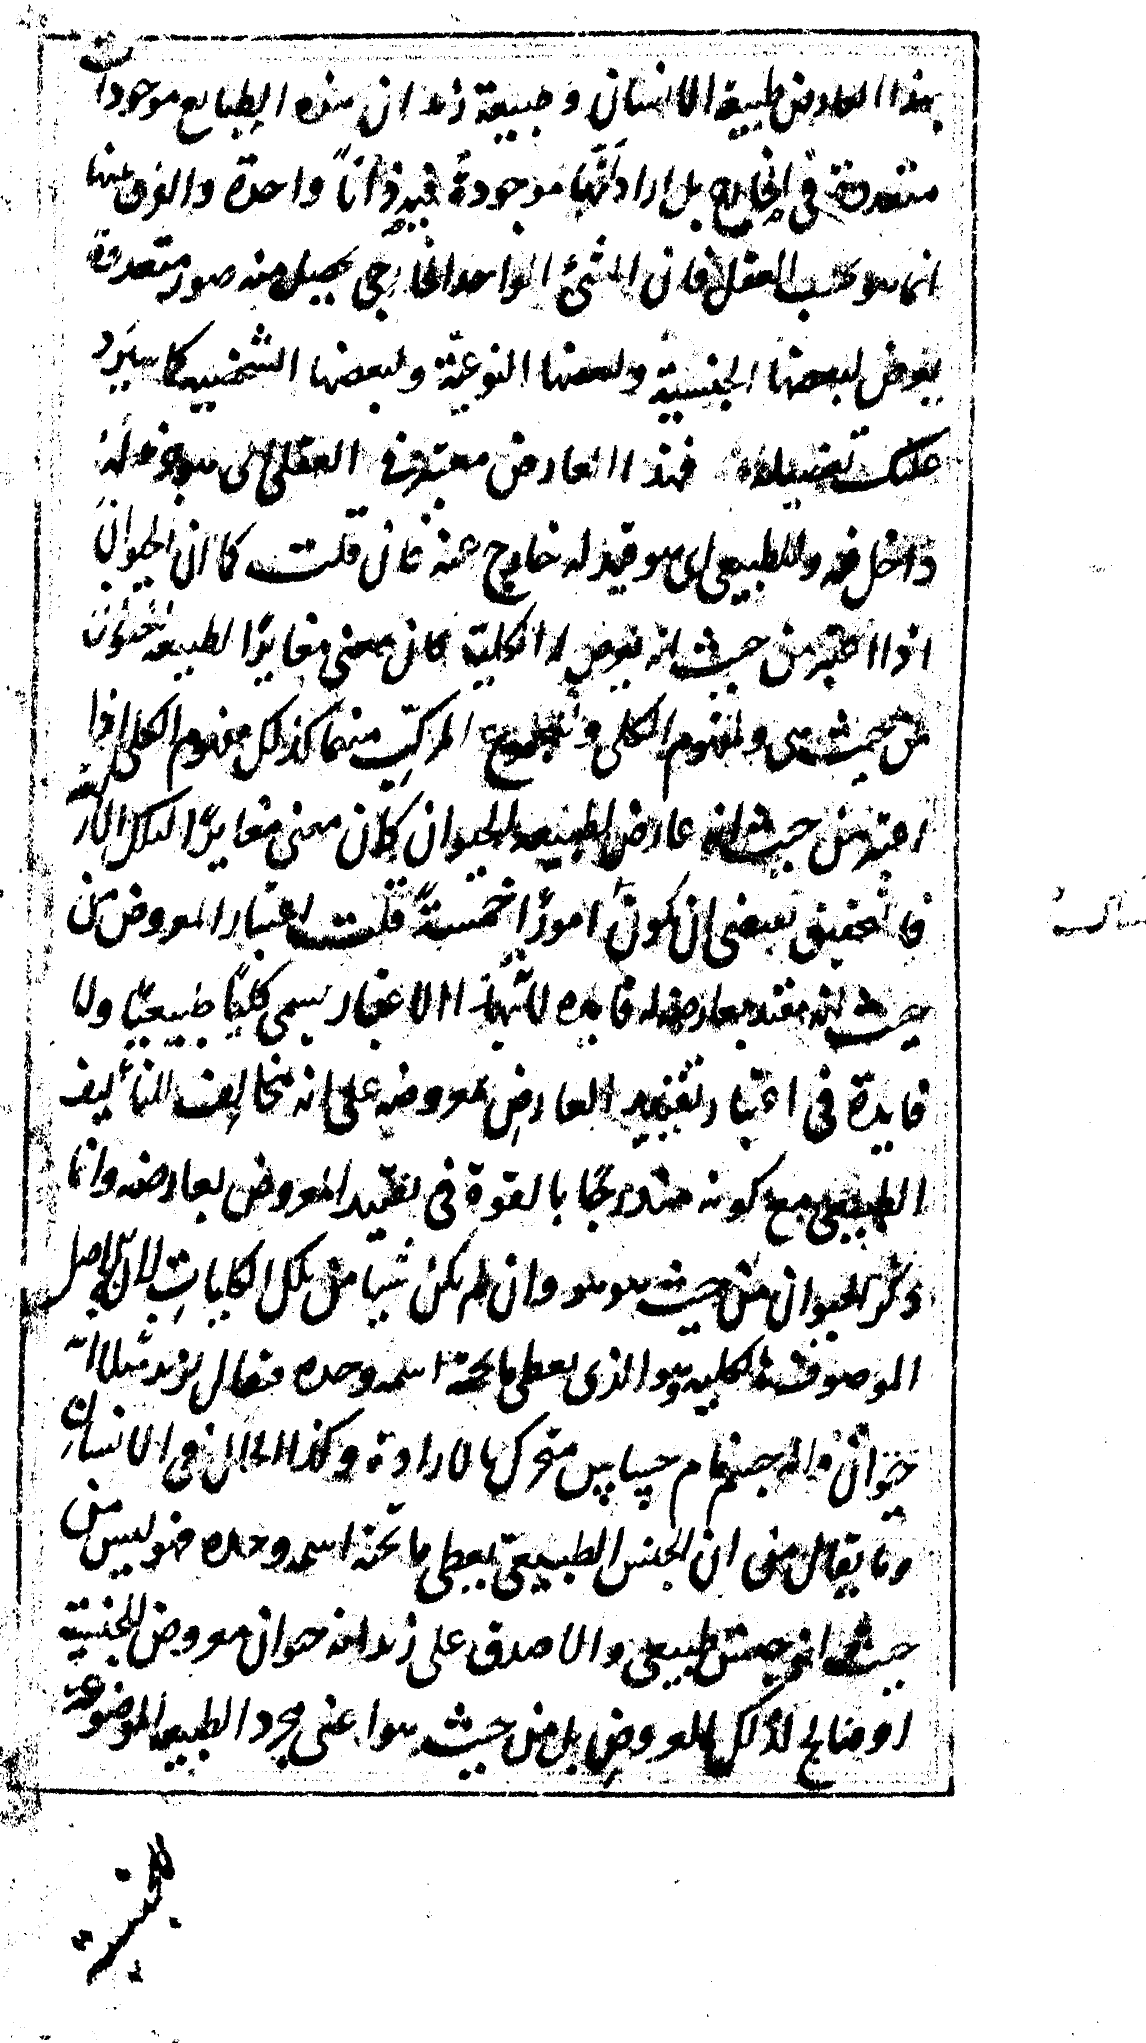 بهذا العارض طبيعة الانسان و طبيعة زيد ان هذه الطبايع موجودات
متعددة في الخارج بل اراد انها موجودة فيه ذاتاً واحدة والفرق بينها
انما هو بحسب العقل فان الشئ الواحد الخارجي يحصل منه صور متعددة
يعرض لبعضها الجنسية ولبعضها النوعية ولبعضها الشخصية كما سيرد
عليك تفصيله فهذا العارض معتبر في العقلي اي هو جزء له
داخل فيه وللطبيعي اي هو قيد له خارج عنه فان قلت كما ان الحيوان
اذا اعتبر من حيث انه يعرض له الكلية كان معنى مغايرًا لطبيعة الحيوان
من حيث هي ولمفهوم الكلي وللمجموع المركب منهما كذلك مفهوم الكلي اذا
اعتبر من حيث انه عارض لطبيعة الحيوان كان معنى مغايرًا لتلك الاربعة
فالتحقيق يقتضي ان يكون امورًا خمسة قلت اعتبار المعروض من
حيث انه مقيد بعارضه له فايدة لانه بهذا الاعتبار يسمى كليًا طبيعيًا ولا
فايدة في اعتبار تقييد العارض بمعروضه على انه مخالف للتأليف
الطبيعي مع كونه مندرجًا بالقوة في تقييد المعروض بعارضه وانما
ذكر الحيوان من حيث هو هو وان لم يكن شيا من تلك الكليات لانه الاصل
الموصوف بالكلية وهو الذي يعطي ما تحته اسمه وحده فيقال زيد مثلا انه
حيوان وانه جسم نام حساس متحرك بالارادة وكذا الحال في الانسان
وما يقال من ان الجنس الطبيعي يعطي ما تحته اسمه وحده فهو ليس من
حيث انه جنس طبيعي والا صدق على زيد انه حيوان معروض للجنسية
او صالح لذلك المعروض بل من حيث هو اعني مجرد الطبيعة الموضوعة
للجنسية